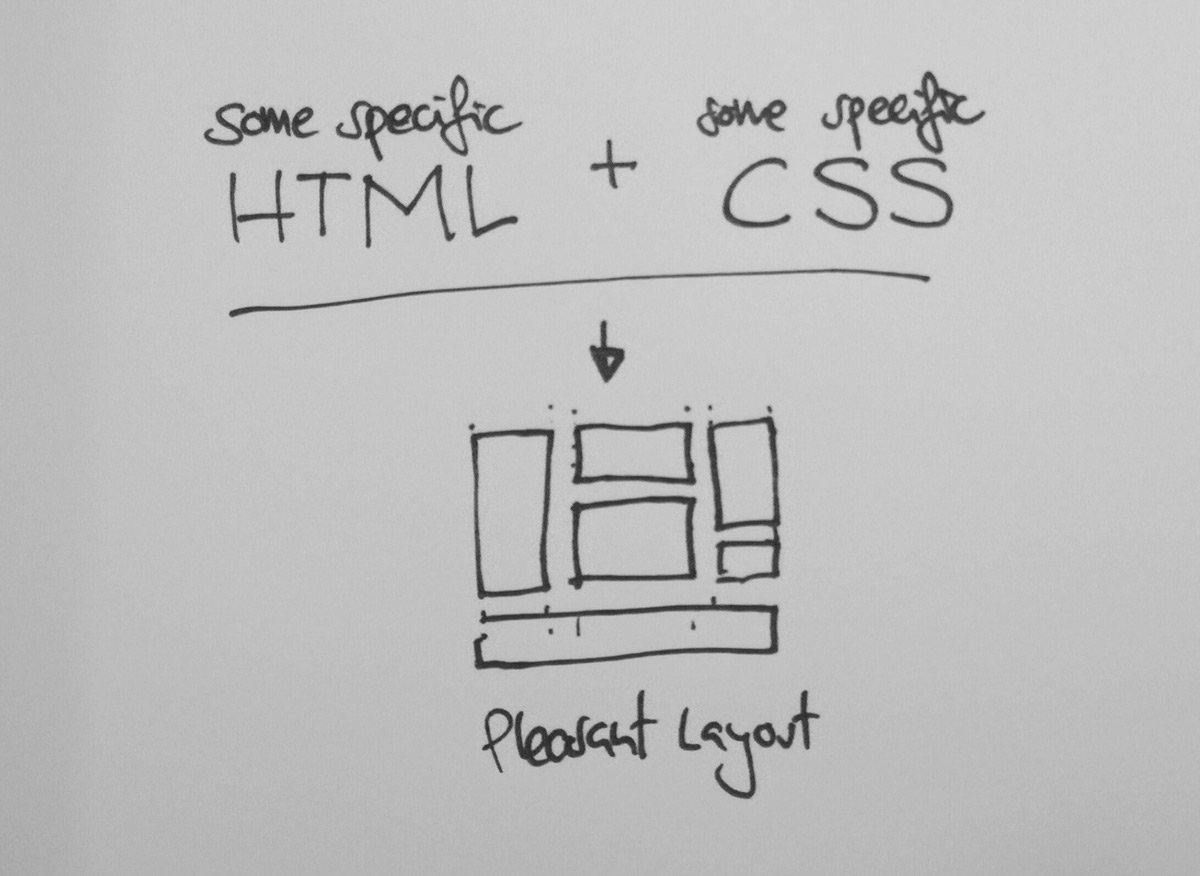 some specific
HTML
+
some specific
CSS
Pleasant Layout